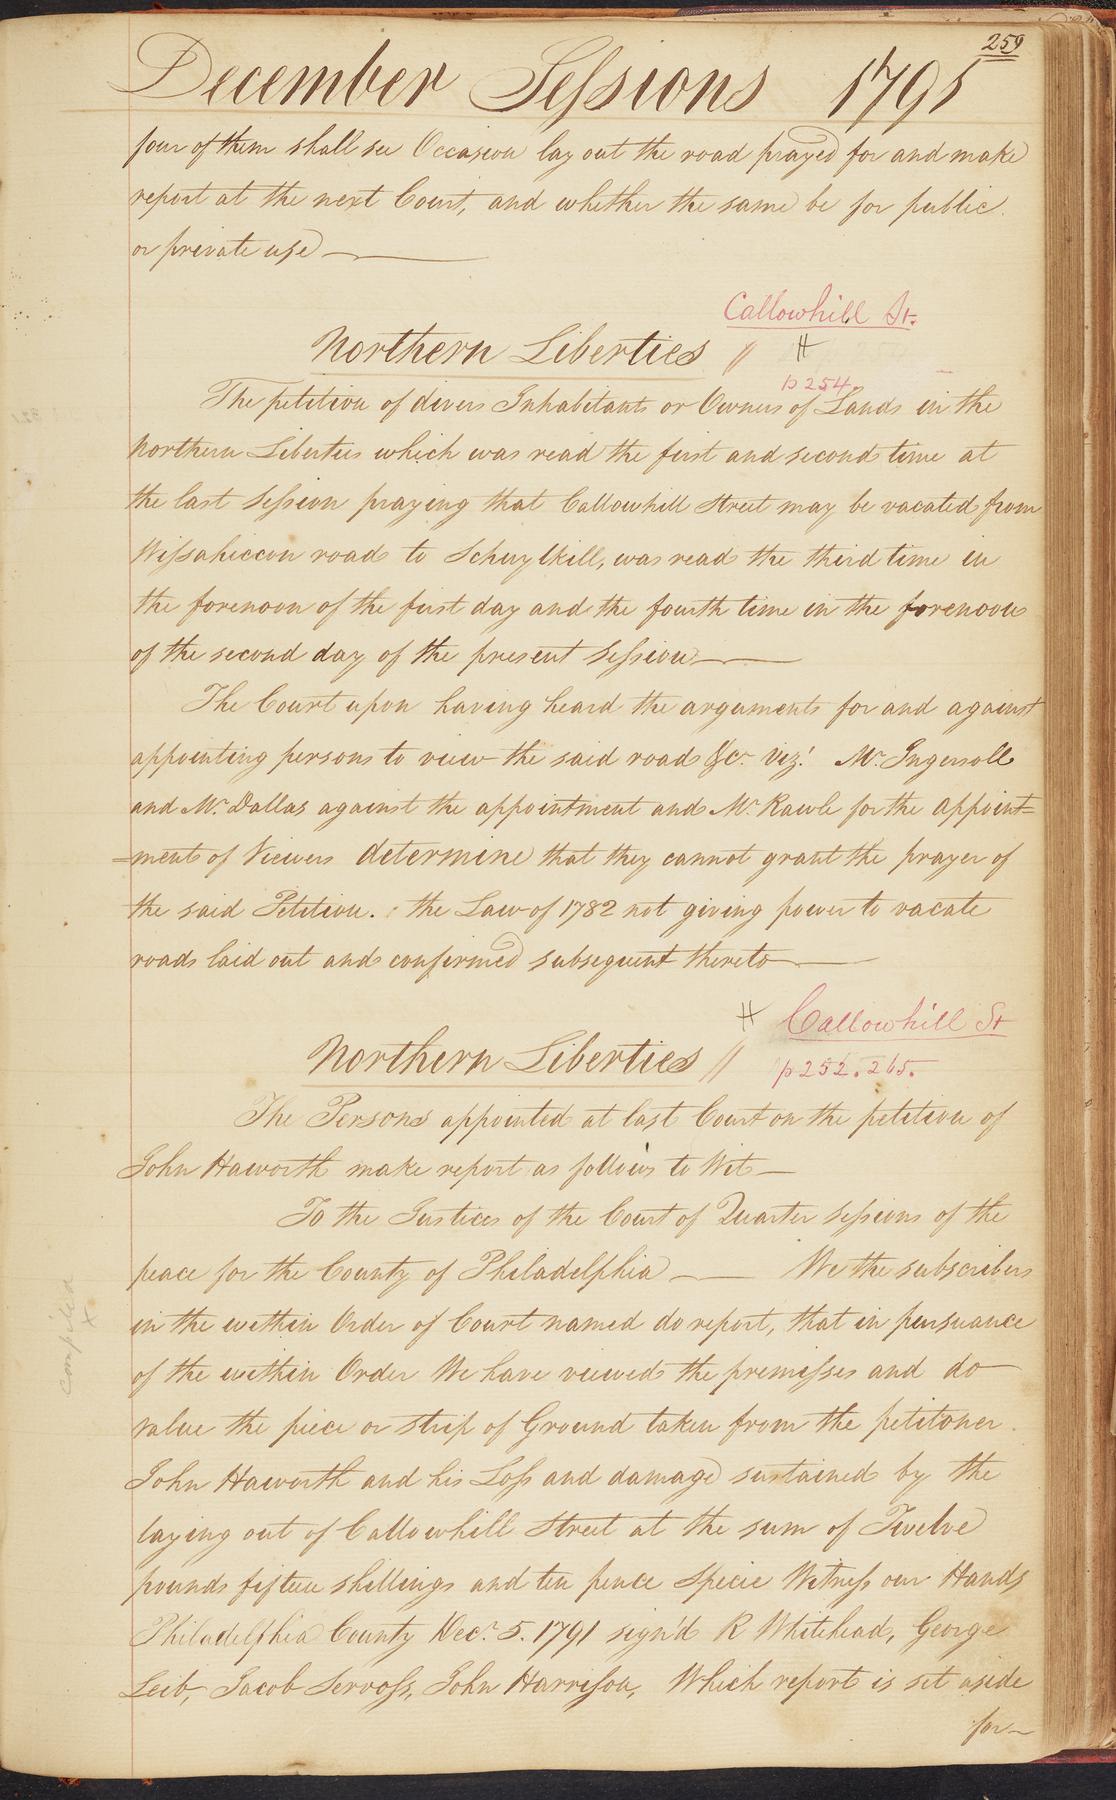 259
December Sessions 1791
four of them shall see Occasion lay out the road prayed for and make
report at the next Court, and whether the same be for public
or private use
Callowhill St.
Northern Liberties // H
p 254.
The petition of divers Inhabitants or Owners of Lands in the
Northern Liberties which was read the first and second time at
the last Session praying that Callowhill Street may be vacated from
Wissahiccon road to Schuylkill, was read the third time in
the forenoon of the first day and the fourth time in the forenoon
of the second day of the present Session
The Court upon having heard the arguments for and against
appointing persons to view the said road &c. vizt. Mr. Ingersoll
and Mr. Dallas against the appointment and Mr. Rawle for the appoint=
=ments of Viewers determine that they cannot grant the prayer of
the said Petition. the Law of 1782 not giving power to vacate
roads laid out and confirmed subsequent thereto
H Callowhill St
Northern Liberties // p 252. 265.
The Persons appointed at last Court on the petition of
John Haworth make report as follows to Wit
To the Justices of the Court of Quarter Sessions of the
peace for the County of Philadelphia We the subscribers
in the within Order of Court named do report, that in pursuance
of the within Order We have viewed the premisses and do
value the piece or strip of Ground taken from the petitoner
John Haworth and his Loss and damage sustained by the
laying out of Callowhill Street at the sum of Twelve
pounds fifteen shillings and ten pence specie Witness our Hands
Philadelphia County Decr. 5. 1791 sign'd R Whitehead, George
Leib, Jacob Servoss, John Harrison, Which report is set aside
for
compiled
x